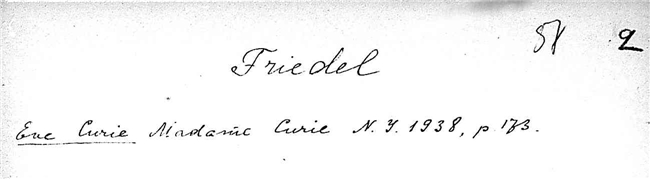 58 2
Friedel
Eve Curie Madame Curie N.Y. 1938, p. 173.